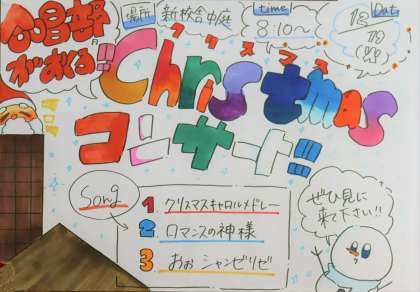 合唱部
がおくる!!
場所
新校舎中庭
time
8:10～
Date
12/19
クリスマス
Christmas
コンサート!!!
Song
1 クリスマスキャロルメドレー
2 ロマンスの神様
3 おぉ シャンゼリゼ
ぜひ見に
来て下さい!!